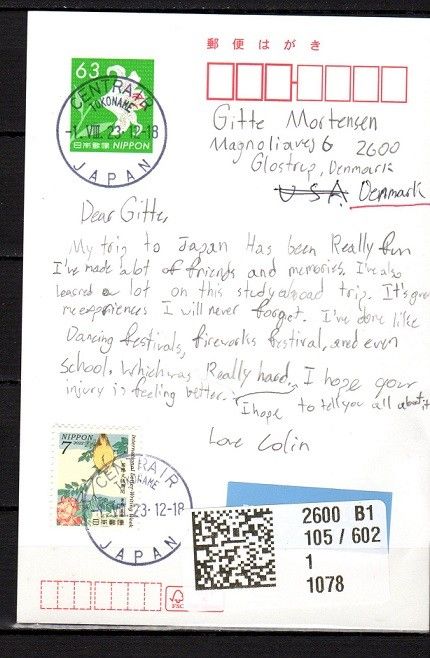 郵便はがき
63
日本郵便 NIPPON
CENTRAIR
TOKONAME
-1. VIII. 23. 12-18
JAPAN
Gitte Mortensen
Magnoliavej 6 2600
Glostrup, Denmark
USA Denmark
Dear Gitte,
My trip to Japan Has been Really fun
I've made alot of friends and memories. I've also
learned a lot on this study abroad trip. It's give
me experiences I will never forget. I've done like
Dancing festivals, fireworks festival, and even
School. Which was Really hard. I hope your
injury is feeling better. I hope to tell you all about it
Love Colin
NIPPON
7
International Letter Writing Week
日本郵便
CENTRAIR
NAME
23. 12-18
JAPAN
2600 B1
105 / 602
1
1078
FSC